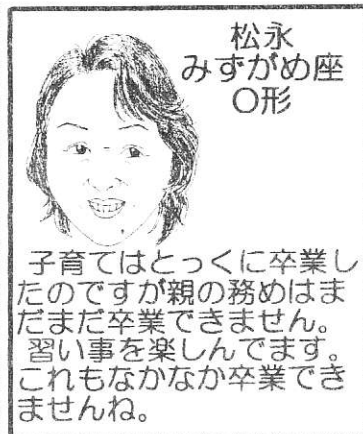 松永
みずがめ座
O形
子育てはとっくに卒業し
たのですが親の務めはま
だまだ卒業できません。
習い事を楽しんでます。
これもなかなか卒業でき
ませんね。